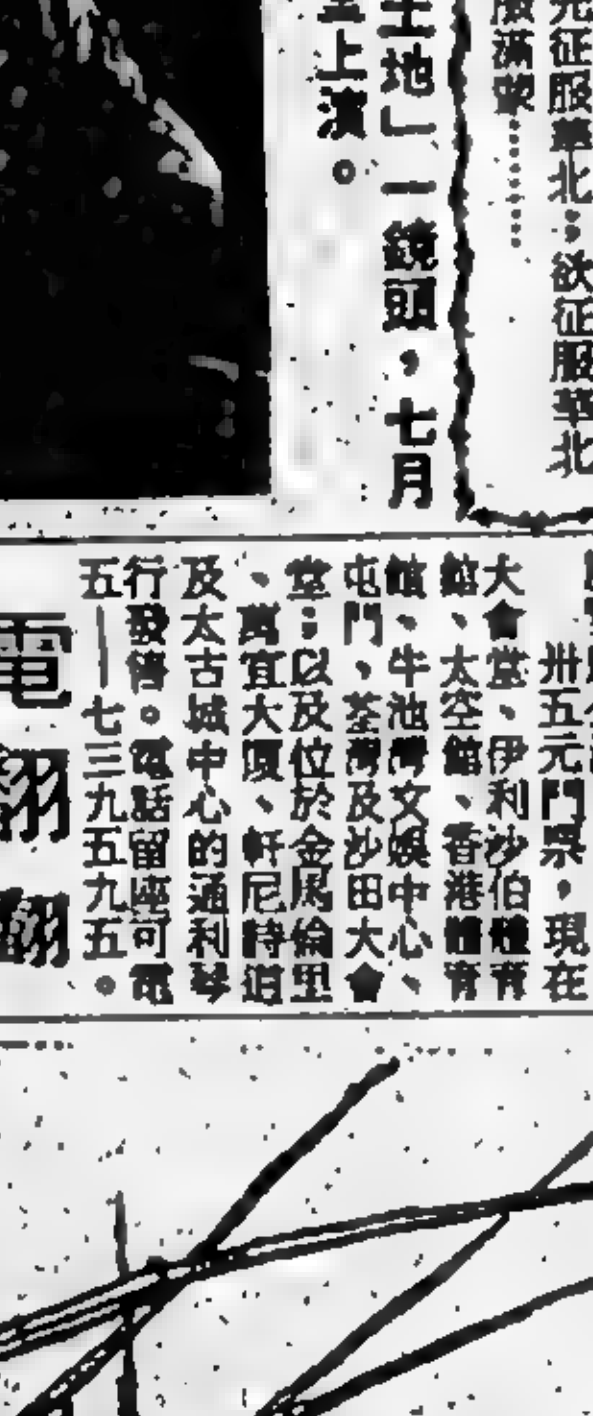 元征服華北；欲征服華北
服滿蒙………
土地」一鏡頭，七月
上演。
卅五元門票，現在
大會堂、伊利沙伯體育
館、太空館、香港體育
館、牛池灣文娛中心、
屯門，荃灣及沙田大會
堂；以及位於金馬倫里
、萬宜大廈、軒尼詩道
及太古城中心的通利琴
行發售。電話留座可電
五—七三九五九五。
電
翻